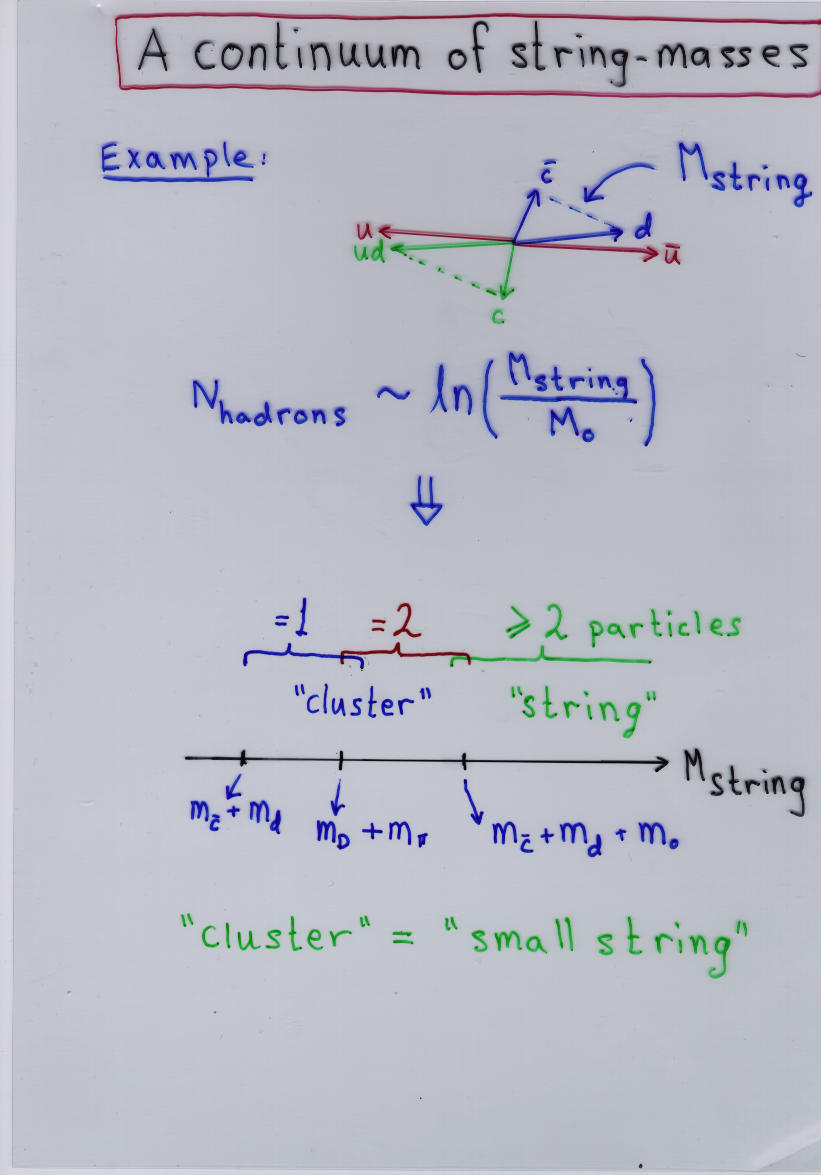 A continuum of string-masses
Example:
M_string
c̄
d
u
ud
ū
c
N_hadrons ~ ln(M_string/M_o)
⇓
=1 =2 ⩾ 2 particles
"cluster" "string"
M_string
m_c̄ + m_d m_D + m_π m_c̄ + m_d + m_o
"cluster" = "small string"